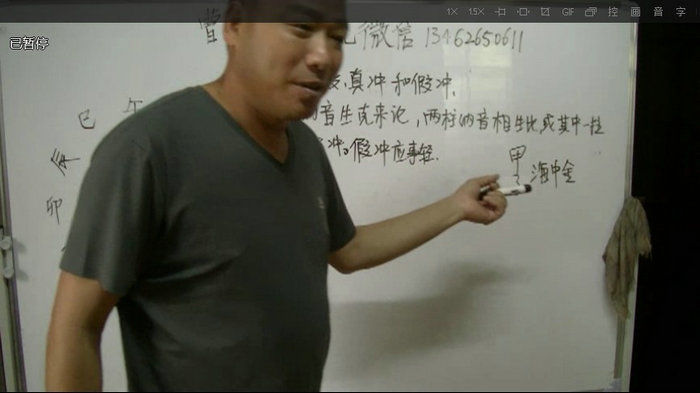 1X 1.5X GIF 控 画 音 字
已暂停
曹 微信 13462650611
真冲和假冲.
纳音生克来论，两柱纳音相生比或其中一柱
冲。假冲应事轻.
巳 午
卯
甲
海中金